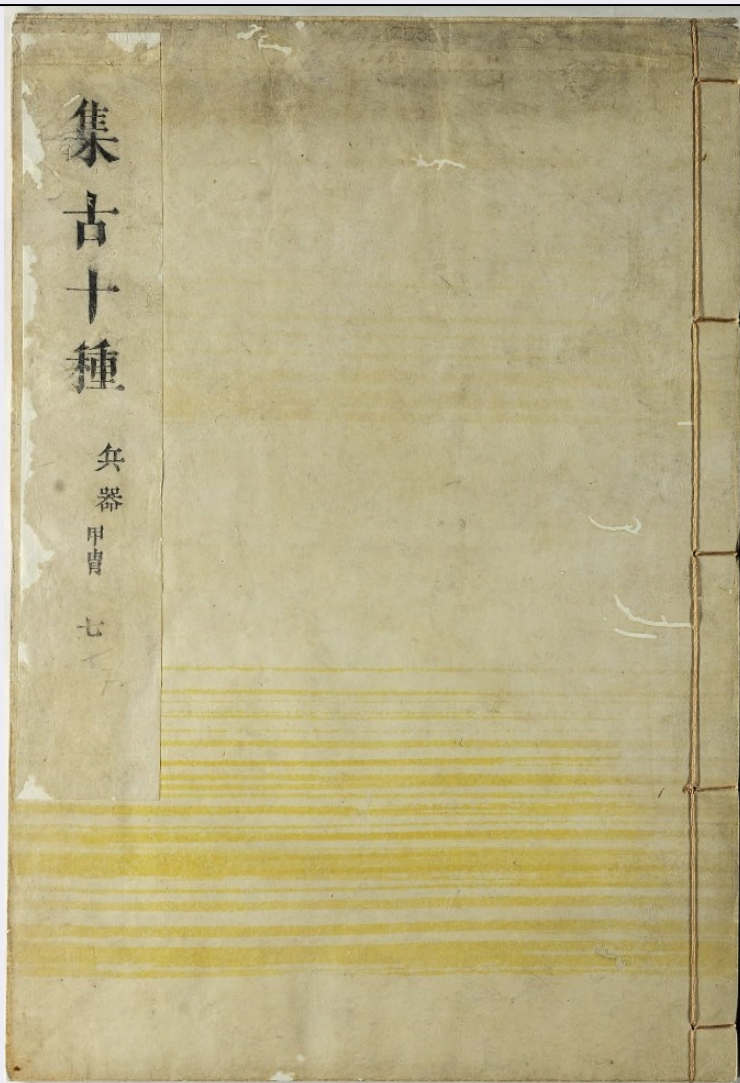 集古十種 兵器 甲冑 七